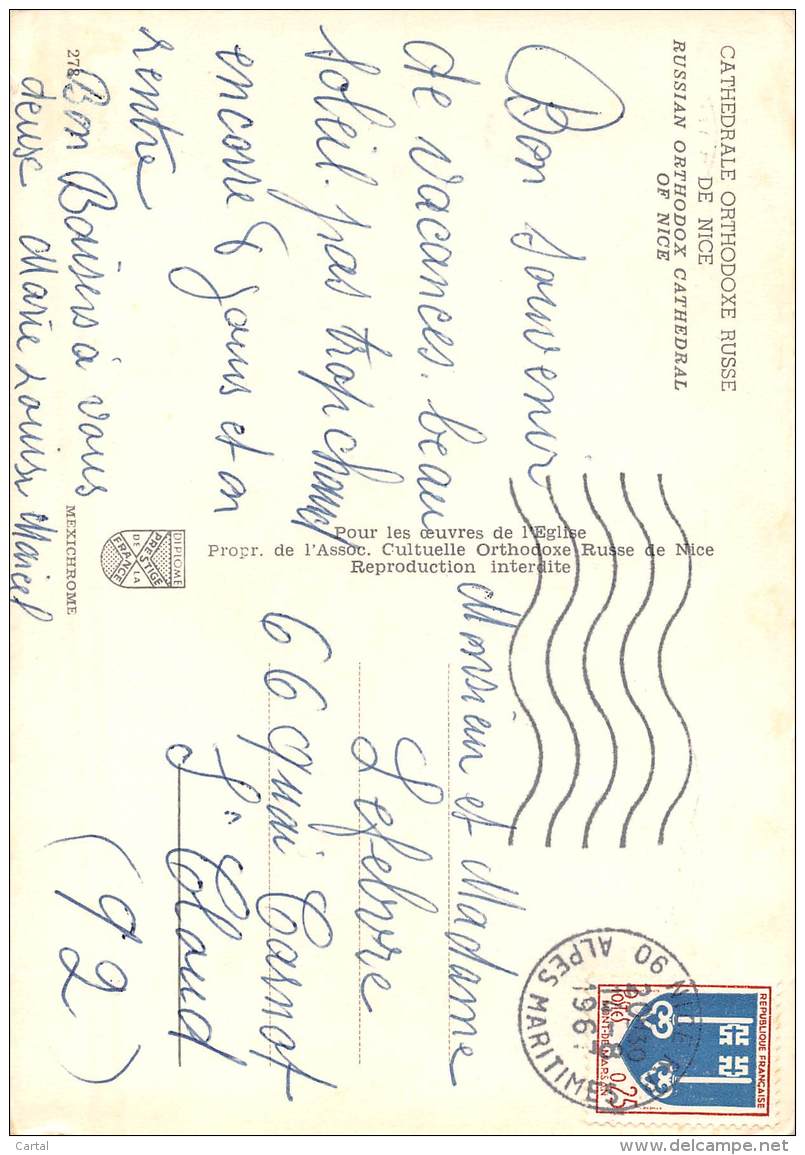 CATHEDRALE ORTHODOXE RUSSE
DE NICE
RUSSIAN ORTHODOX CATHEDRAL
OF NICE
Bon souvenir
de vacances. beau
soleil. pas trop chaud
encore 8 jours et on
rentre
Bon Baisers à vous
deux Marie Louise Marcel
278
MEXICHROME
DIPLOME
PRESTIGE
DE LA
FRANCE
Pour les œuvres de l'Eglise
Propr. de l'Assoc. Cultuelle Orthodoxe Russe de Nice
Reproduction interdite
Monsieur et Madame
Lefebvre
66 quai Carnot
St Cloud
(92)
REPUBLIQUE FRANÇAISE
0,25
POSTES
MONT-DE-MARSAN
NICE
ALPES MARITIMES
Cartal
delcampe.net